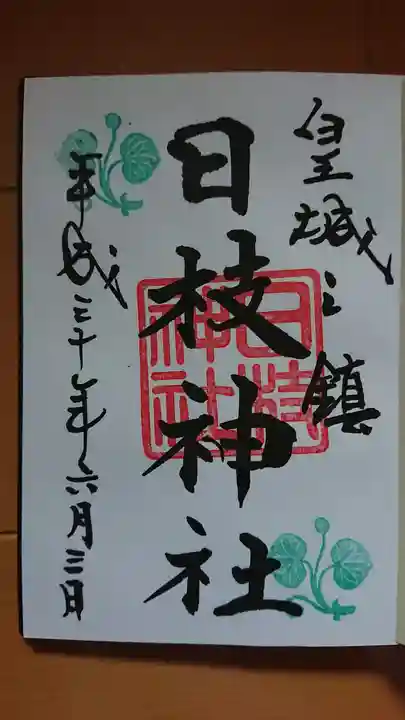 皇城之鎮
日枝神社
日枝
神社
平成三十年六月三日